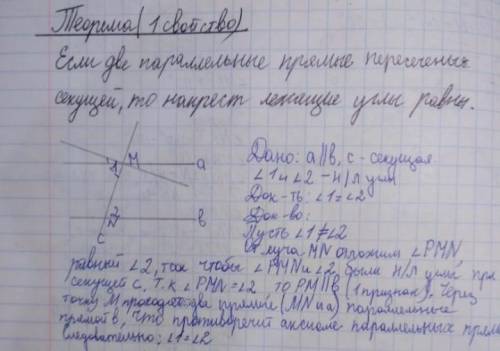 Теорема (1 свойство)
Если две параллельные прямые пересечены
секущей, то накрест лежащие углы равны.
1 M a
2 b
c
Дано: a||b, c - секущая
∠1 и ∠2 - н/л углы
Док-ть: ∠1=∠2
Док-во:
Пусть ∠1≠∠2
От луча MN отложим ∠PMN,
равный ∠2, так чтобы ∠PMN и ∠2, были н/л углы при
секущей c, т.к ∠PMN=∠2 то PM||b (1 признак). Через
точку M проходят две прямые (MN и a) параллельные
прямой b, что противоречит аксиоме параллельных прям
Следовательно: ∠1=∠2